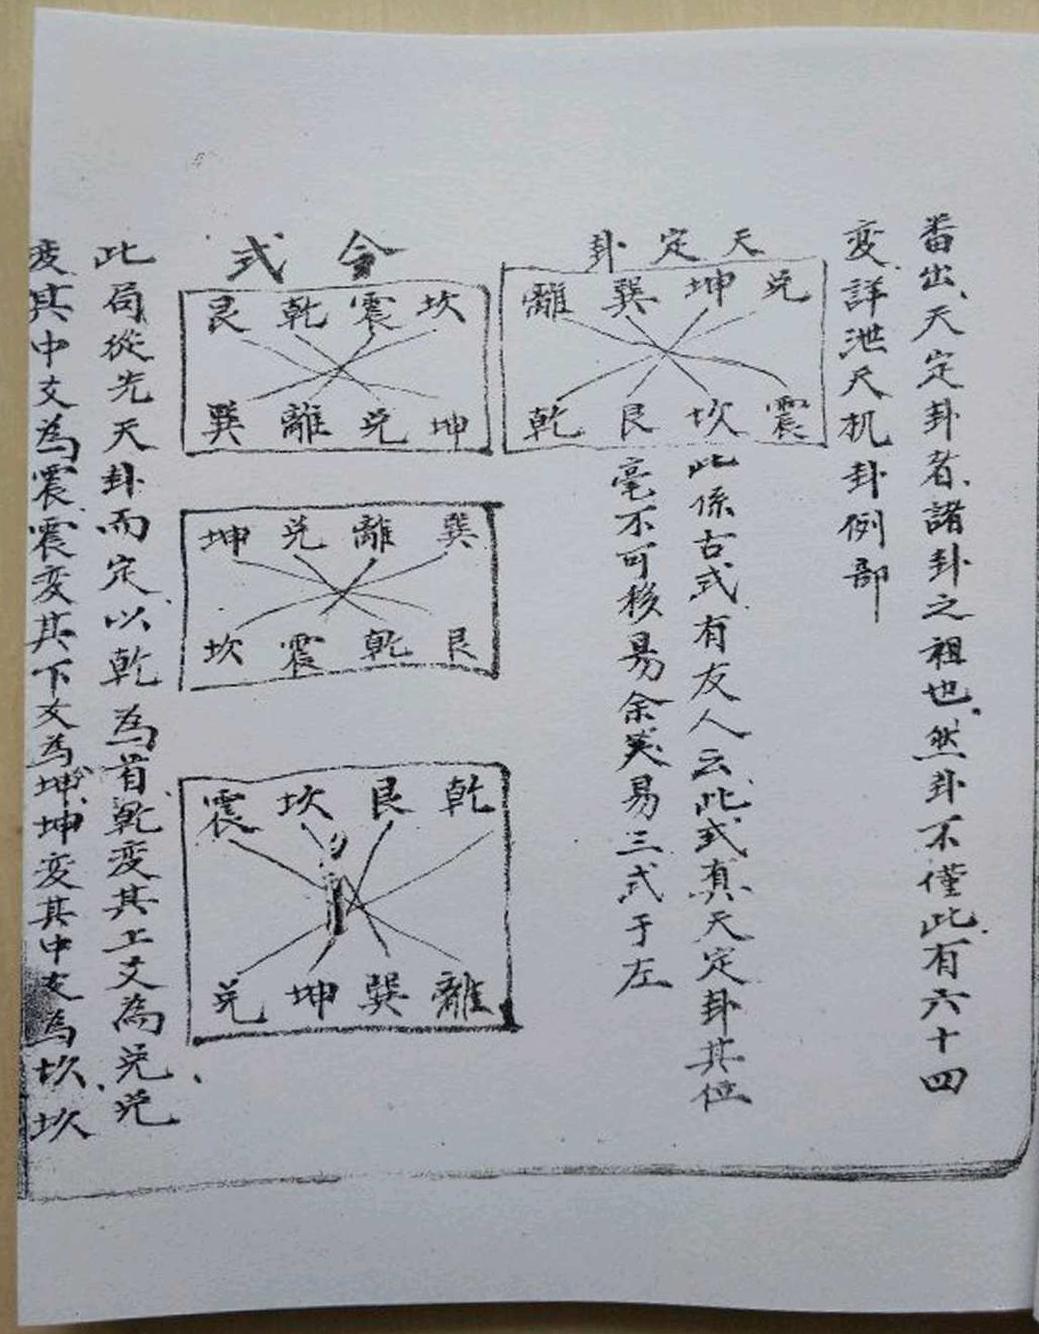 番出天定卦者諸卦之祖也然卦不僅此有六十四
变詳泄尺机卦例部
天定卦
兑坤巽離
震坎艮乾
此係古式有友人云此式真天定卦其位
毫不可移易余美易三式于左
今式
坎震乾艮
坤兑離巽
巽離兑坤
艮乾震坎
乾艮坎震
離巽坤兑
此局從先天卦而定以乾為首乾变其上爻為兑兑
变其中爻為震震变其下爻為坤坤变其中爻為坎坎